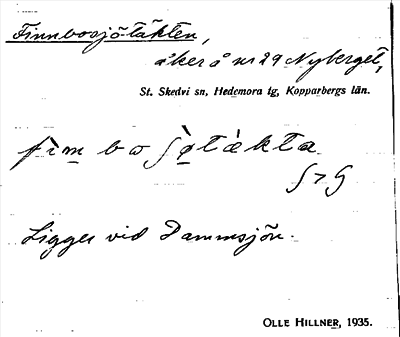 Finnbosjötäkten,
åker å nr 29 Nyberget,
St. Skedvi sn, Hedemora tg, Kopparbergs län.
fìm bo ʃø̀tækta
ʃ > ʒ
Ligger vid Dammsjön.
OLLE HILLNER, 1935.